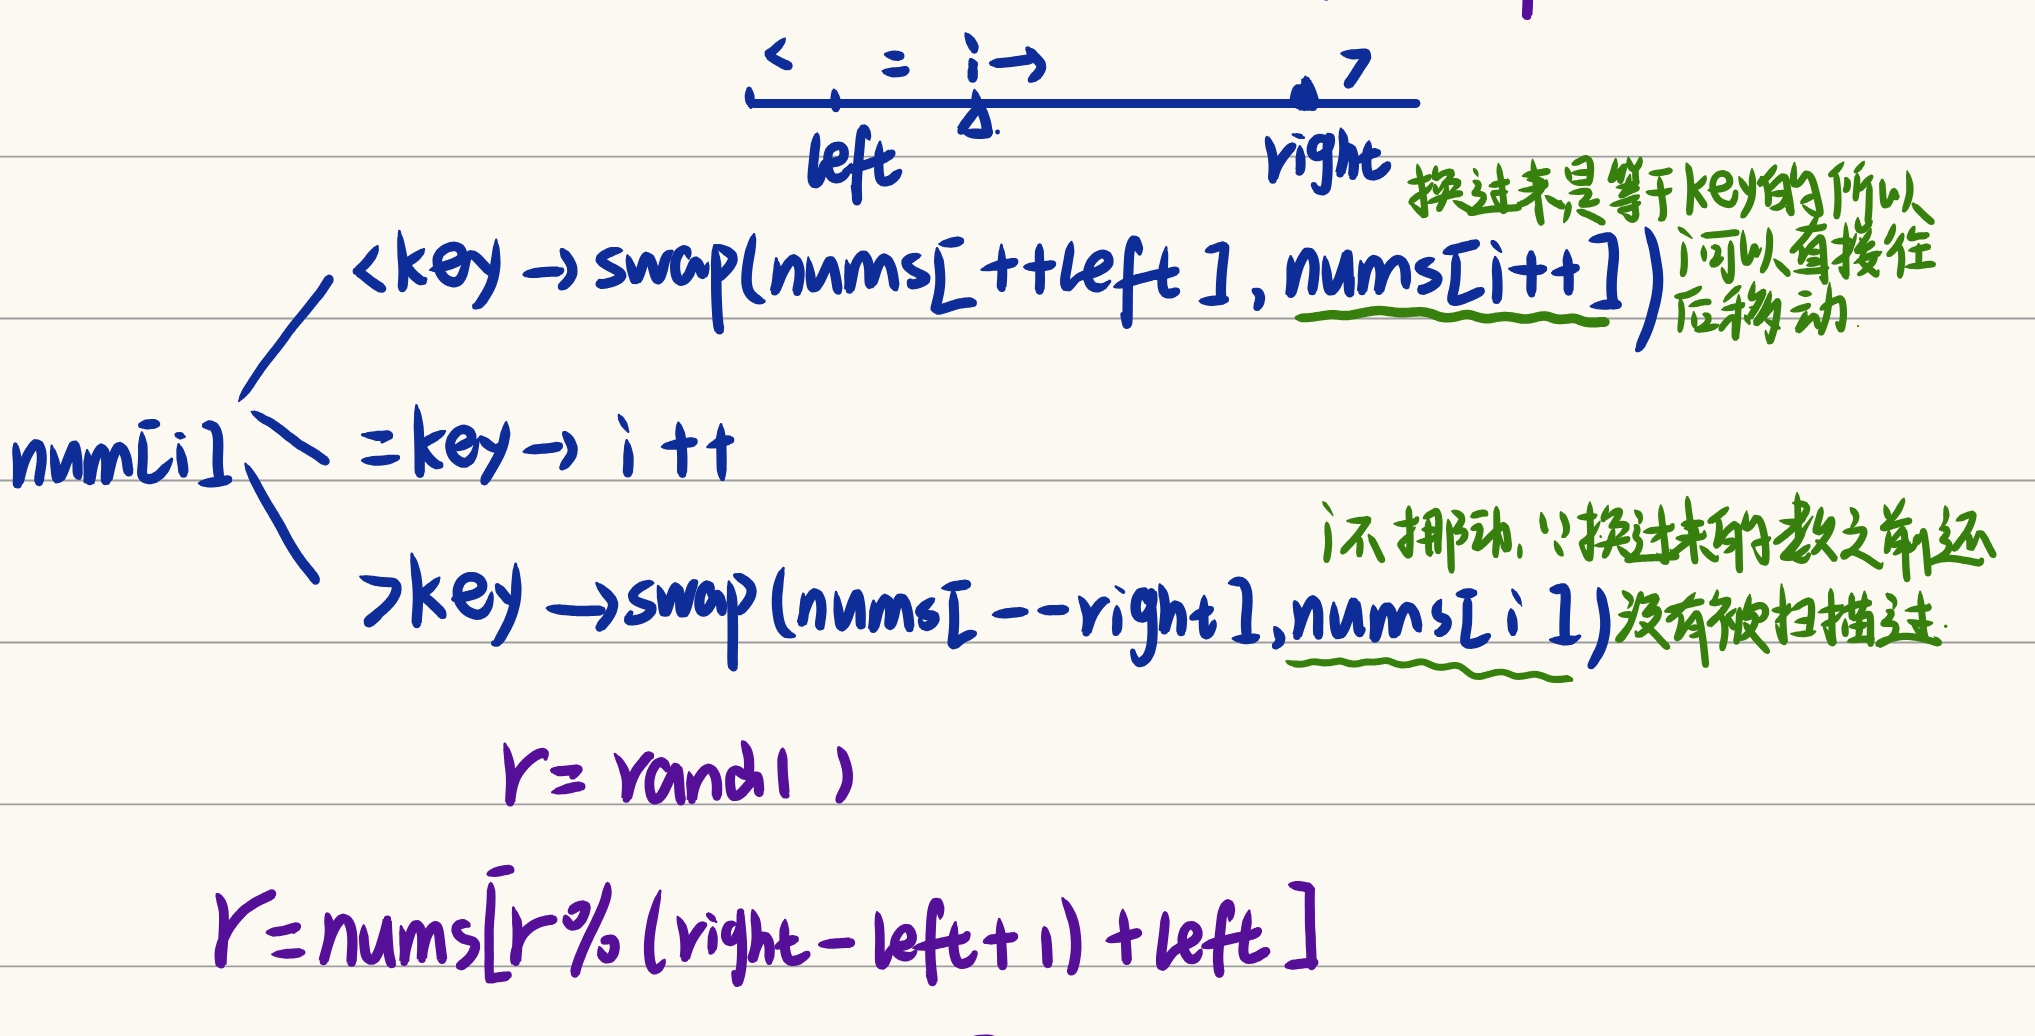 < = i→ >
left right
换过来是等于key的所以
<key → swap(nums[++left], nums[i++]) i可以直接往
后移动
num[i] =key → i++
i不挪动, ∵换过来的数之前还
>key → swap(nums[--right], nums[i]) 没有被扫描过.
r = rand( )
r = nums[r % (right - left + 1) + left]